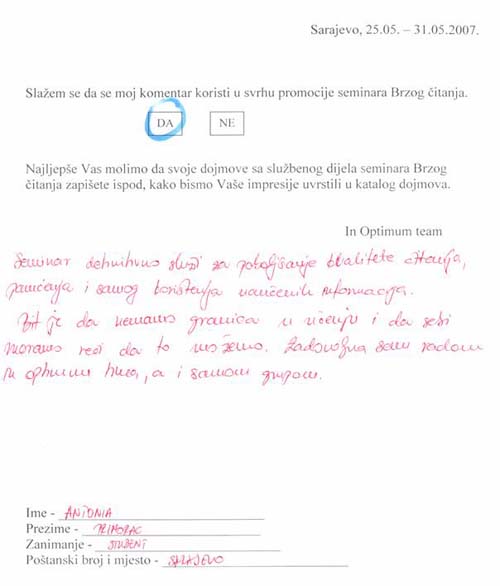 Sarajevo, 25.05. – 31.05.2007.
Slažem se da se moj komentar koristi u svrhu promocije seminara Brzog čitanja.
DA NE
Najljepše Vas molimo da svoje dojmove sa službenog dijela seminara Brzog
čitanja zapišete ispod, kako bismo Vaše impresije uvrstili u katalog dojmova.
In Optimum team
Seminar definitivno služi za poboljšanje kvalitete čitanja,
pamćenja i samog korištenja naučenih informacija.
Bit je da nemamo granica u učenju i da sebi
moramo reći da to možemo. Zadovoljna sam radom
In optimum tima, a i samom grupom.
Ime - ANTONIA
Prezime - PRIMORAC
Zanimanje - STUDENT
Poštanski broj i mjesto - SARAJEVO